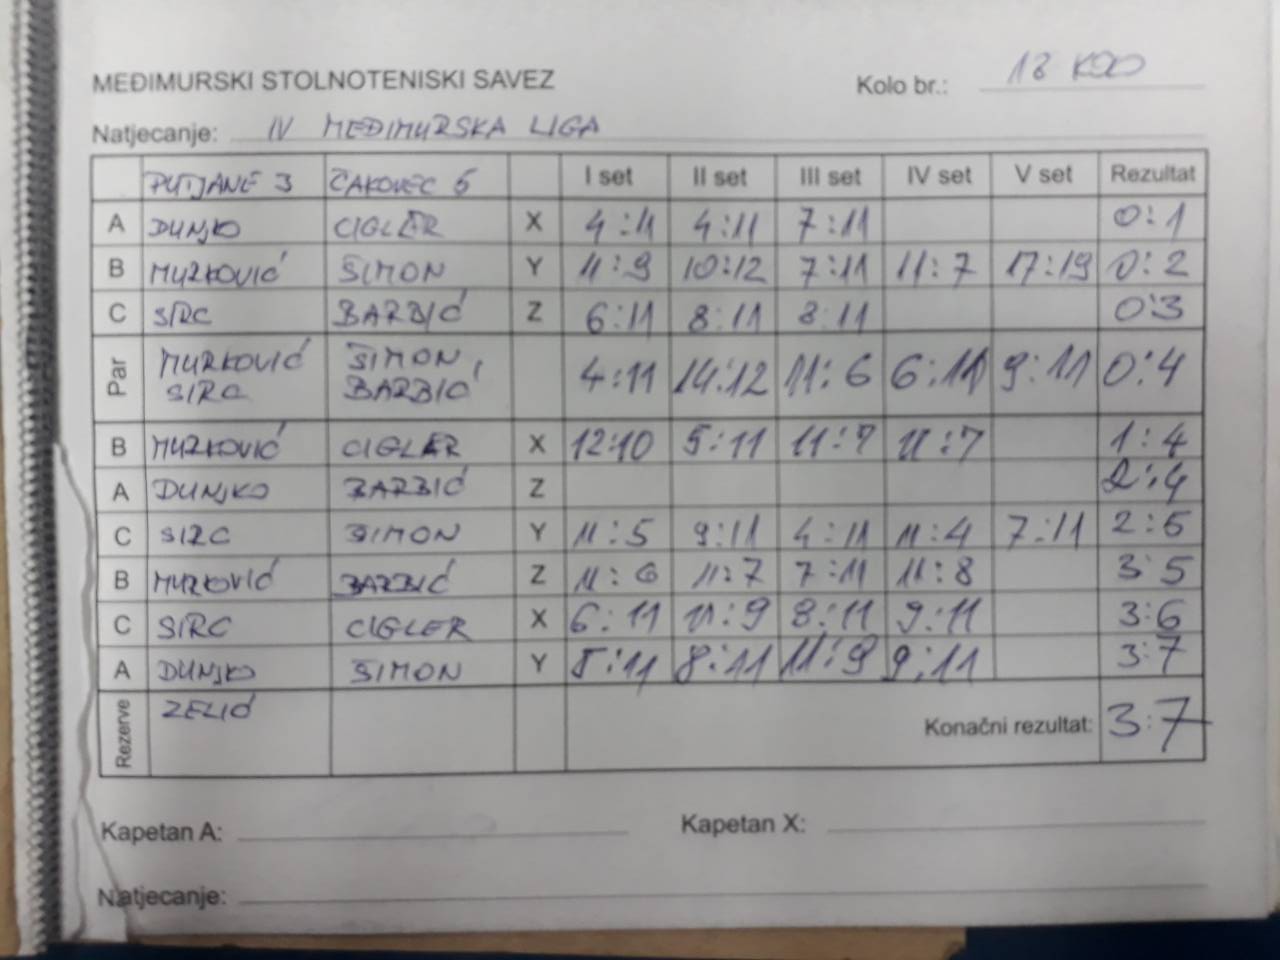 MEĐIMURSKI STOLNOTENISKI SAVEZ Kolo br.: 18 KOLO
Natjecanje: IV MEĐIMURSKA LIGA
PUTJANE 3 ČAKOVEC 6 I set II set III set IV set V set Rezultat
A DUNJKO CIGLER X 4:11 4:11 7:11 0:1
B MURKOVIĆ ŠIMON Y 11:9 10:12 7:11 11:7 17:19 0:2
C SIRC BARBIĆ Z 6:11 8:11 8:11 0:3
Par MURKOVIĆ SIRC ŠIMON, BARBIĆ 4:11 14:12 11:6 6:11 9:11 0:4
B MURKOVIĆ CIGLER X 12:10 5:11 11:7 11:7 1:4
A DUNJKO BARBIĆ Z 2:4
C SIRC ŠIMON Y 11:5 9:11 4:11 11:4 7:11 2:5
B MURKOVIĆ BARBIĆ Z 11:6 11:7 7:11 11:8 3:5
C SIRC CIGLER X 6:11 11:9 8:11 9:11 3:6
A DUNJKO ŠIMON Y 5:11 8:11 11:9 9:11 3:7
Rezerve ZELIĆ Konačni rezultat: 3:7
Kapetan A: Kapetan X:
Natjecanje: